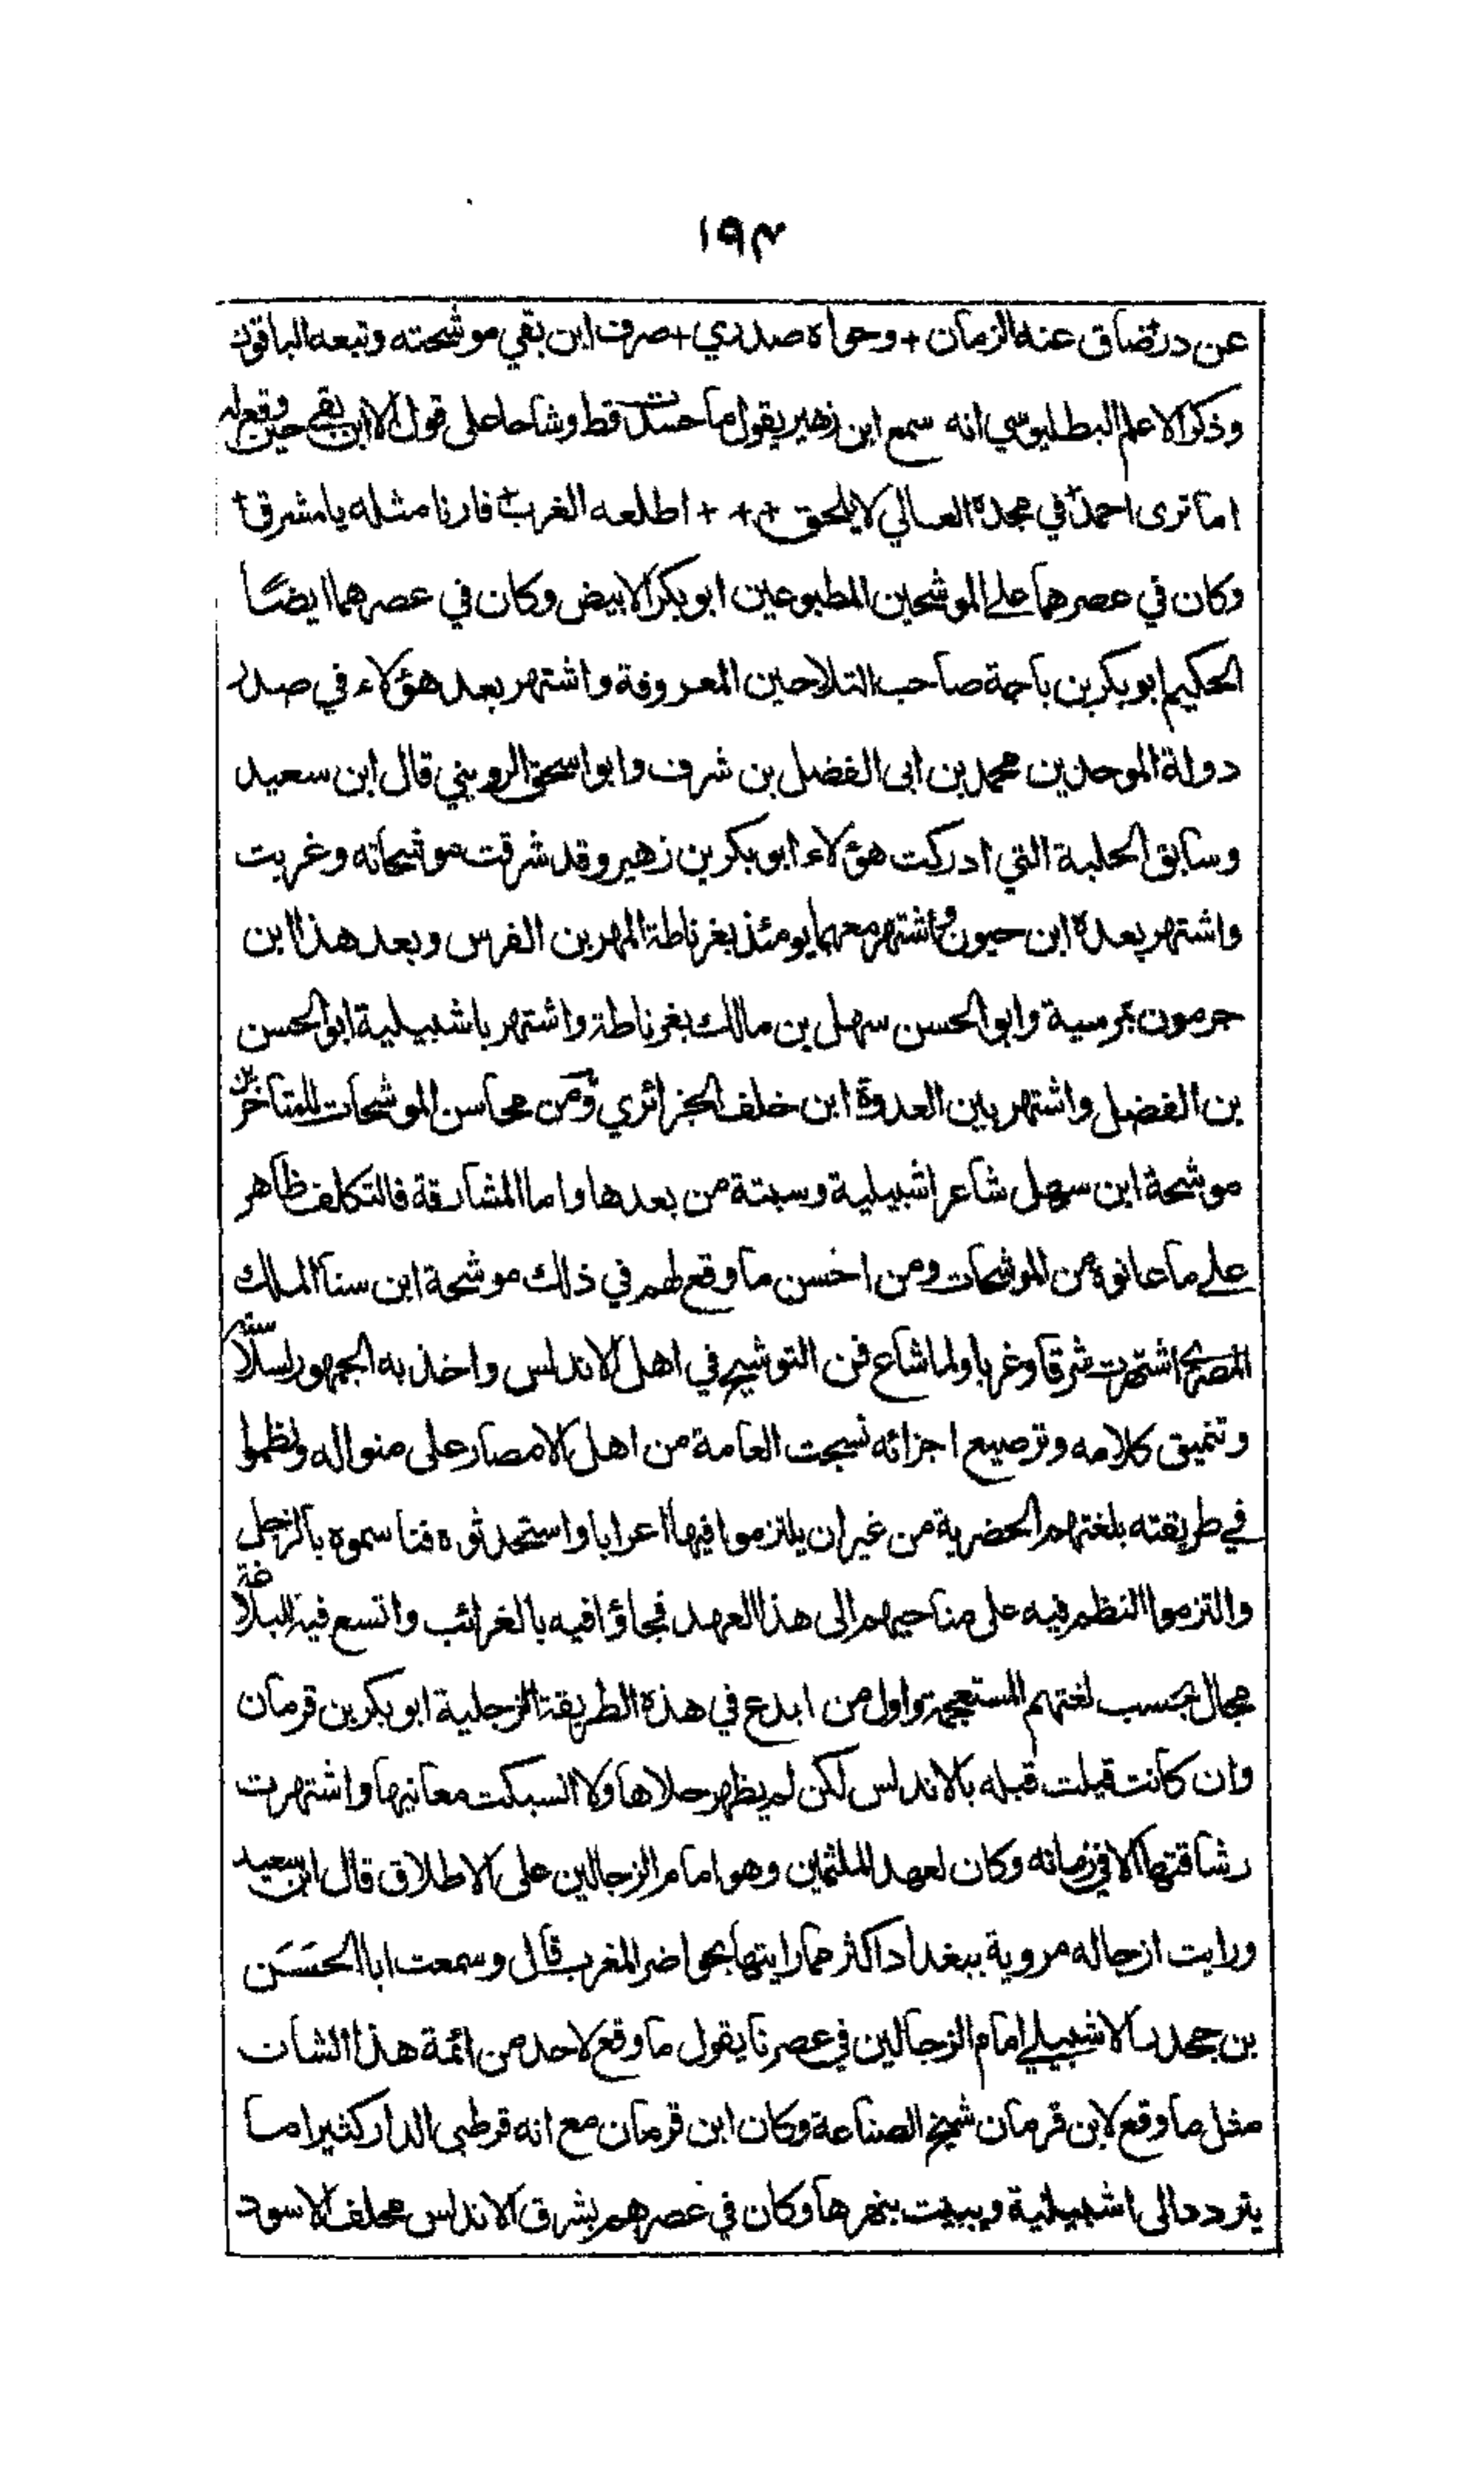 ١٩٣
عن در ضاق عنه الزمان + وحواه صدري + صرف ابن بقي موشحته وتبعه الباقون
وذكر الاعلم البطليوسي انه سمع ابن زهير يقول ما حسدت قط وشاحا على قول الا ابن بقي حين وقع له
اما ترى احمد في مجده العالي لا يلحق + + + اطلعه الغرب فارنا مثله يا مشرق +
وكان في عصرهما على الموشحين المطبوعين ابو بكر الابيض وكان في عصرهما ايضا
الحكيم ابو بكر بن باجة صاحب التلاحين المعروفة واشتهر بعد هؤلاء في صدر
دولة الموحدين محمد بن ابى الفضل بن شرف وابو اسحق الرويني قال ابن سعيد
وسابق الحلبة التي ادركت هؤلاء ابو بكر بن زهير وقد شرقت موشحاته وغربت
واشتهر بعده ابن حيون واشتهر معهما يومئذ بغرناطة المهر بن الفرس وبعد هذا ابن
جرمون بمرسية وابو الحسن سهل بن مالك بغرناطة واشتهر باشبيلية ابو الحسن
بن الفضل واشتهر بين العدوة ابن خلف الجزائري ومن محاسن الموشحات للمتاخرين
موشحة ابن سهل شاعر اشبيلية وسبتة من بعدها واما المشارقة فالتكلف ظاهر
على ما عانوه من الموشحات ومن احسن ما وقع لهم في ذلك موشحة ابن سنا الملك
المصري اشتهرت شرقا وغربا ولما شاع فن التوشيح في اهل الاندلس واخذ به الجمهور لسلاسته
وتنميق كلامه وترصيع اجزائه نسجت العامة من اهل الامصار على منواله ونظموا
في طريقته بلغتهم الحضرية من غير ان يلتزموا فيها اعرابا واستحدثوه فنا سموه بالزجل
والتزموا النظم فيه على مناحيهم الى هذا العهد فجاؤا فيه بالغرائب واتسع فيه للبلاغة
مجال بحسب لغتهم المستعجمة واول من ابدع في هذه الطريقة الزجلية ابو بكر بن قرمان
وان كانت قيلت قبله بالاندلس لكن لم يظهر حلاها ولا انسبكت معانيها واشتهرت
رشاقتها الا في زمانه وكان لعهد الملثمين وهو امام الزجالين على الاطلاق قال ابن سعيد
ورايت ازجاله مروية ببغداد اكثر مما رايتها بحواضر المغرب قال وسمعت ابا الحسن
بن جحدر الاشبيلي امام الزجالين في عصرنا يقول ما وقع لاحد من ائمة هذا الشان
مثل ما وقع لابن قرمان شيخ الصناعة وكان ابن قرمان مع انه قرطبى الدار كثيرا ما
يتردد الى اشبيلية ويبيت بنهرها وكان في عصرهم بشرق الاندلس محلف الاسود